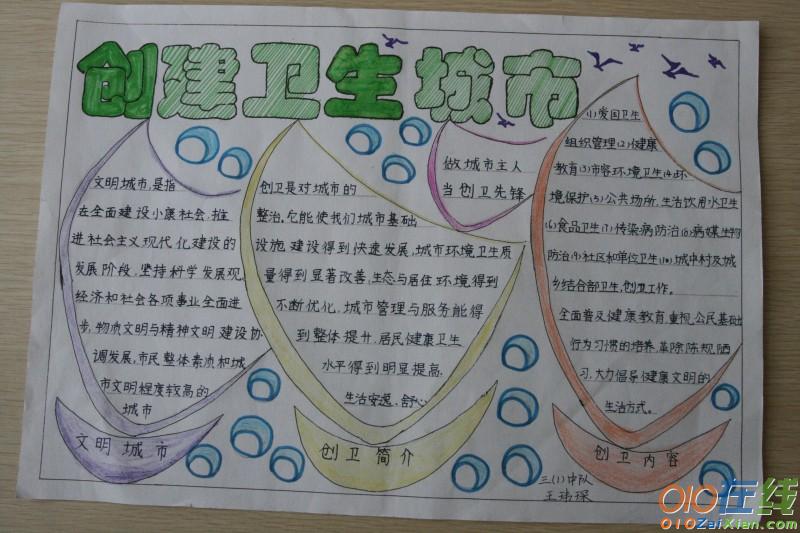 创建卫生城市
文明城市,是指
在全面建设小康社会,推
进社会主义现代化建设的
发展阶段,坚持科学发展观,
经济和社会各项事业全面进
步,物质文明与精神文明建设协
调发展,市民整体素质和城
市文明程度较高的
城市
文明城市
创卫是对城市的
整治,它能使我们城市基础
设施建设得到快速发展,城市环境卫生质
量得到显著改善,生态与居住环境得到
不断优化,城市管理与服务能得
到整体提升,居民健康卫生
水平得到明显提高.
生活安逸,舒心
创卫简介
做城市主人
当创卫先锋
(1)爱国卫生
组织管理(2)健康
教育(3)市容环境卫生(4)环
境保护(5)公共场所,生活饮用水卫生
(6)食品卫生(7)传染病防治(8)病媒生物
防治(9)社区和单位卫生(10)城中村及城
乡结合部卫生,创卫工作。
全面普及健康教育,重视公民基础
行为习惯的培养,革除陈规陋
习,大力倡导健康文明的
生活方式。
创卫内容
三(1)中队
王玮琛
010在线
010ZaiXian.com